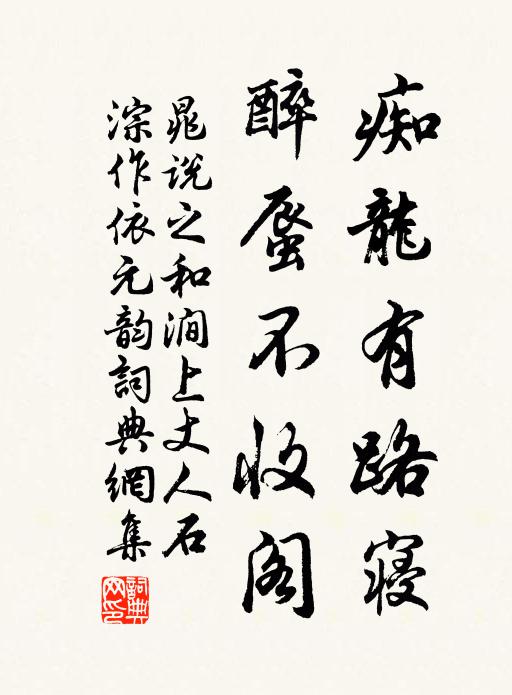 痴龍有路寝
醉蜃不收阁
晁说之和澗上丈人石
淙作依元韵詞典網集
詞典网印